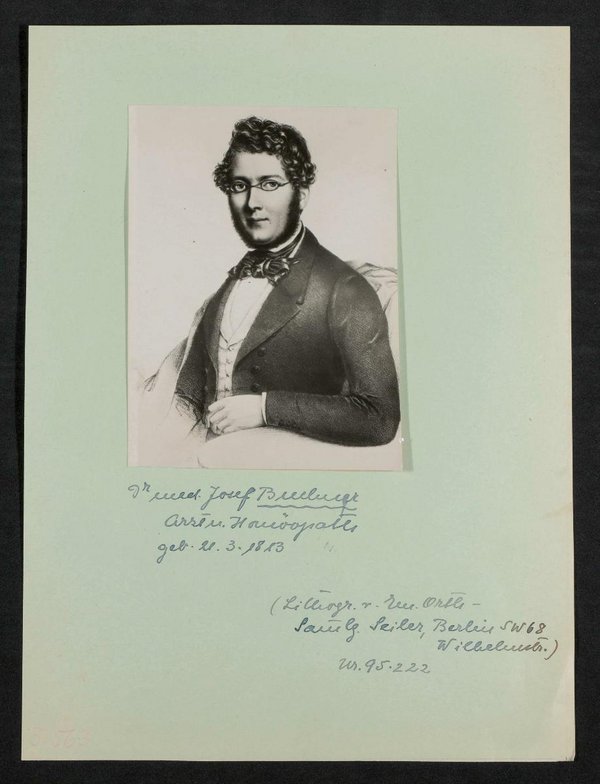 Dr med. Josef Buchner
Arzt u. Homöopath
geb. 21. 3. 1813
(Lithogr. v. Em. Orth -
Samlg. Seiler, Berlin SW68
Wilhelmstr.)
Nr. 95.222